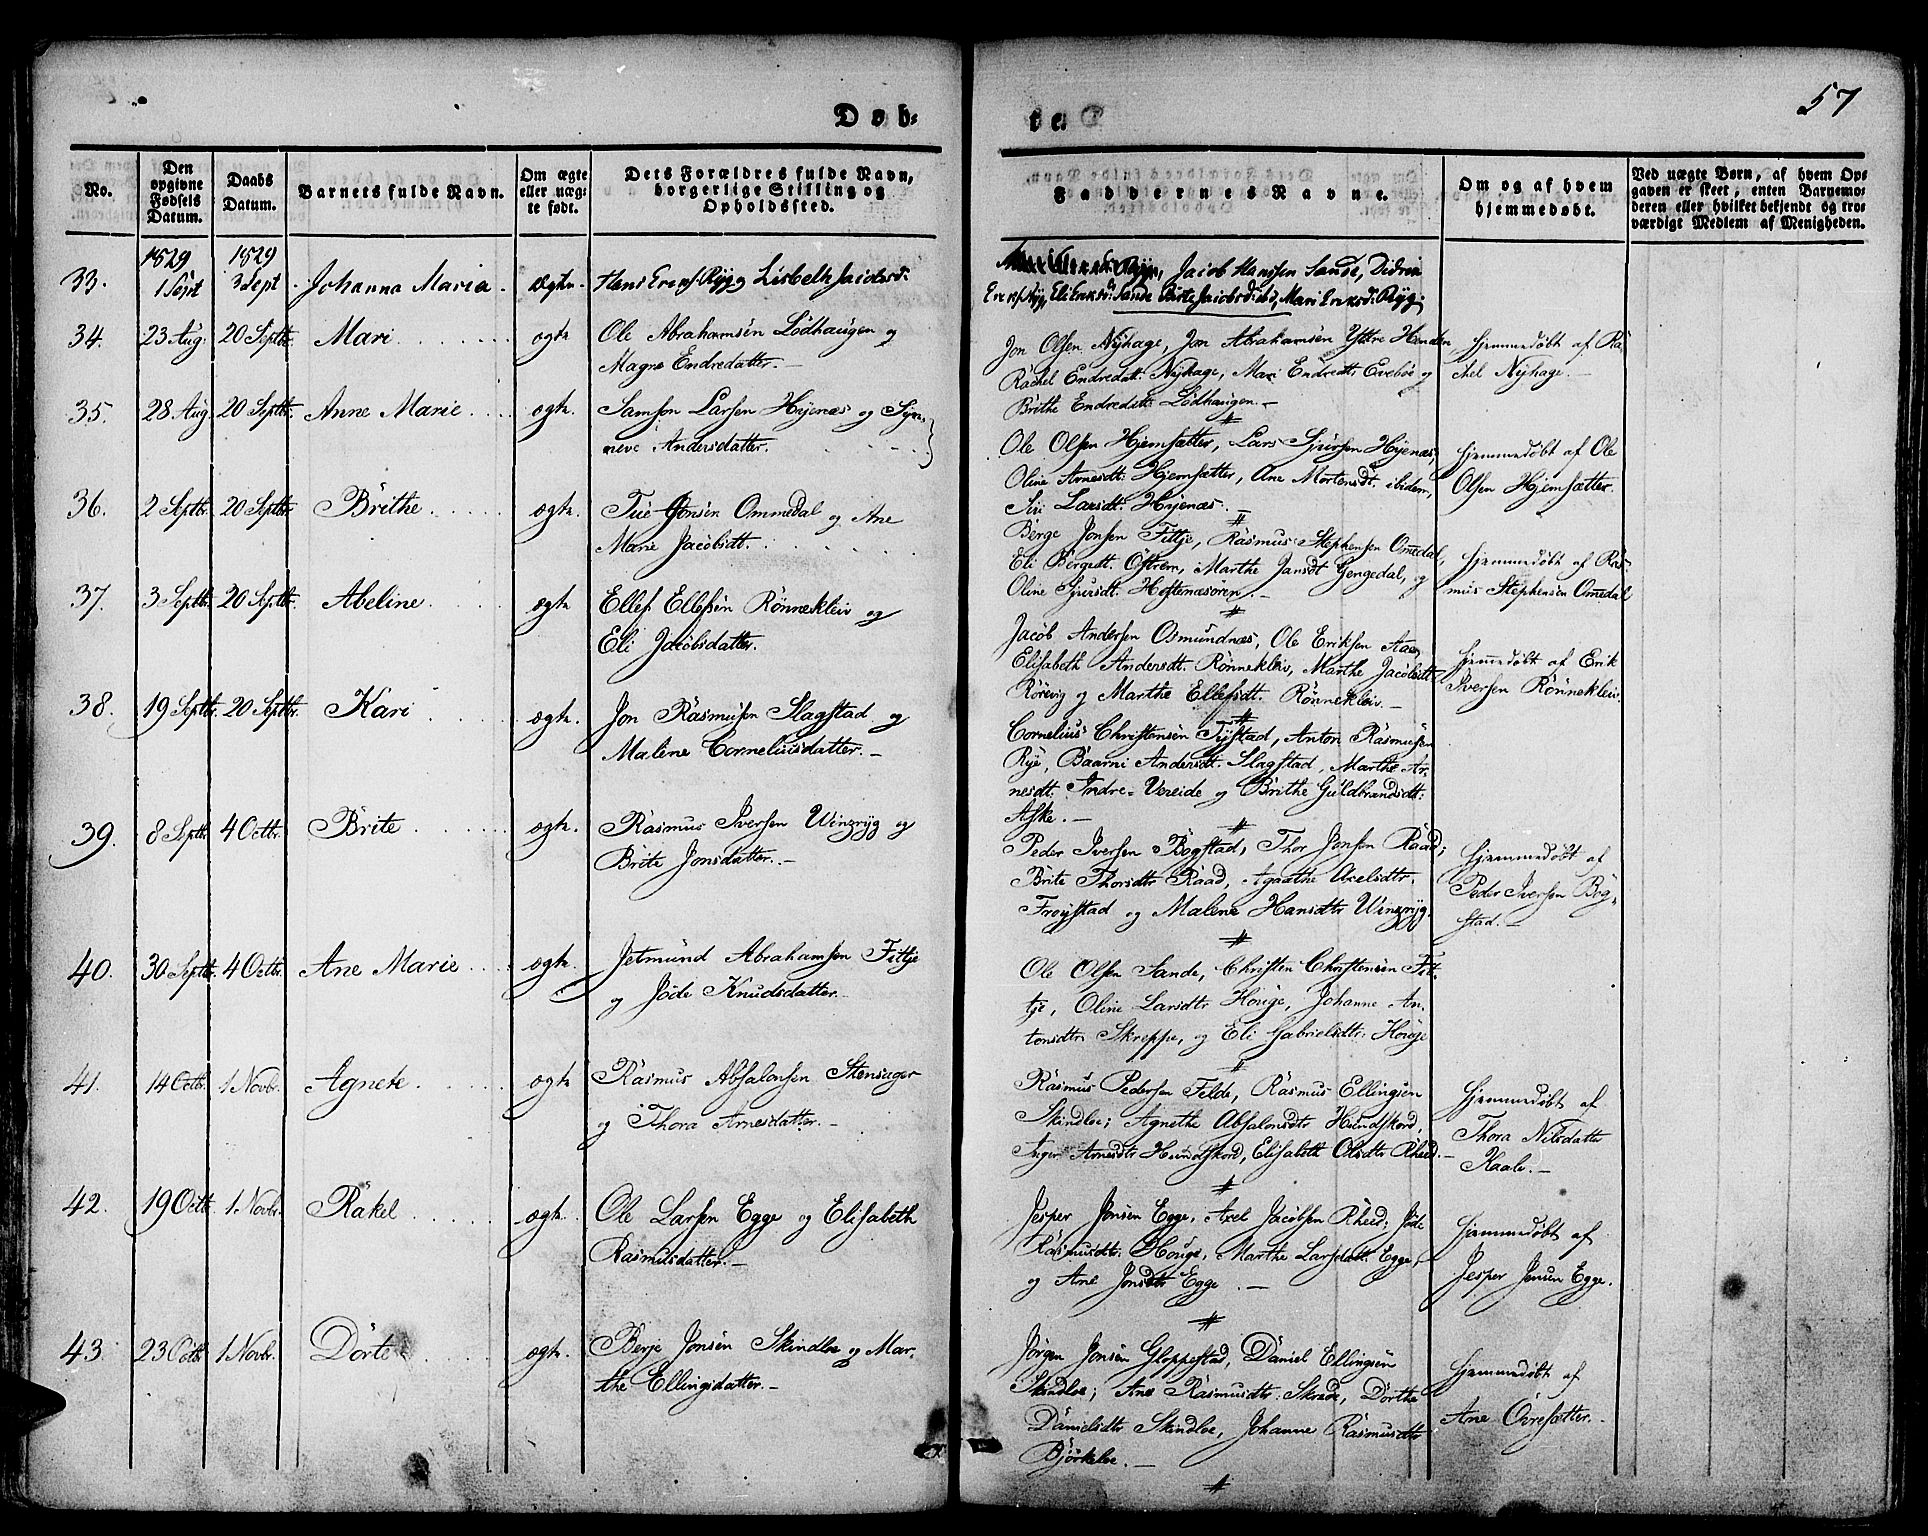 57
Døb-
te.
No.
Den opgivne Fødsels Datum.
Daabs Datum.
Barnets fulde Navn.
Om ægte eller uægte født.
Dets Forældres fulde Navn, borgerlige Stilling og Opholdssted.
Faddernes Navne.
Om og af hvem hjemmedøbt.
Ved uægte Børn, af hvem Opgaven er skeet, enten Barnemoderen eller hvilket bekjendt og troværdigt Medlem af Menigheden.
1829 1829
33. 1 Sept 3 Sept Johanna Maria ægte. Hans Eriks. Ryg og Lisbeth Jacobsd:
Jacob Hanssen Sande, Didrik
Eriks. Ryg, Eli Eriksd: Sande Birte Jacobsd: ibid, Mari Eriksd: Ryg.
34. 23 Aug: 20 Septbr. Mari ægte Ole Abrahamsen Lødhaugen og
Magne Endredatter.
Jon Olsen Nyhage, Jon Abrahamsen Yttre Handen,
Rachel Endredatt. Nyhage, Mari Endredtr Evebøe og
Brithe Endredatt: Lødhaugen.
Hjemmedøbt af Ra-
chel Nyhage.
35. 28 Aug 20 Septbr. Anne Marie ægte. Samson Larsen Hyenæs og Syn-
neve Andersdatter.
Ole Olsen Hjemsætter, Lars Sjursen Hyenæs,
Oline Arnesdt: Hjemsætter, Ane Mortensdt. ibidem,
Siri Larsdt: Hyenæs.
Hjemmedøbt af Ole
Olsen Hjemsætter.
36. 2 Septbr. 20 Septbr. Brithe ægte. Jonsen Ommedal og Ane
Marie Jacobsdt.
Berge Jonsen Fittje, Rasmus Stephensen Omedal,
Eli Bergett. Østrem, Marthe Jansdt Gengedal, og
Oline Sjursdt. Hestenæsøren.
Hjemmedøbt af Ras-
mus Stephensen Omedal
37. 3 Septbr. 20 Septbr. Abeline. ægte. Ellef Ellefsen Rønnekleiv og
Eli Jacobsdatter.
Jacob Andersen Osmundnæs, Ole Eriksen Aaen,
Elisabeth Andersdt. Rønnekleiv, Marthe Jacobsdt
Rørevig og Marthe Ellefsdt. Rønnekleiv.
Hjemedøbt af Erik
Iversen Rønnekleiv.
38. 19 Septbr. 20 Septbr. Kari ægte. Jon Rasmusen Slagstad og
Malene Corneliusdatter.
Cornelius Christensen Tystad, Anton Rasmusen
Rye, Baarni Andersdt. Slagstad, Marthe Ar-
nesdt. Indre-Vereide og Brithe Guldbrandsdt:
Aske.
39. 8 Septbr. 4 Octbr. Brite ægte. Rasmus Iversen Winsryg og
Brite Jonsdatter.
Peder Iversen Bogstad, Thor Jonsen Raad,
Brite Thorsdtr Raad, Agaathe Axelsdtr.
Frøystad og Malene Hansdtr Winsryg.
Hjemmedøbt af
Peder Iversen Bog-
stad.
40. 30 Septbr. 4 Octbr. Ane Marie ægte. Jetmund Abrahamsen Fittje
og Jøde Knudsdatter.
Ole Olsen Sande, Christen Christensen Fit-
tje, Oline Larsdtr Houge, Johanne An-
tonsdtr Skreppe, og Eli Gabrielsdtr: Houge
41. 14 Octbr. 1 Novbr. Agnete ægte Rasmus Absalonsen Stensager
og Thora Arnesdatter.
Rasmus Pedersen Felde, Rasmus Ellingsen
Skindloe; Agnethe Absalonsdt Hundskord,
Inger Arnesdtr Hundskord, Elisabeth Olsdtr Rheed.
Hjemmedøbt af
Thora Nilsdatter
Kaale.
42. 19 Octbr. 1 Novbr. Rakel ægte. Ole Larsen Egge og Elisabeth
Rasmusdatter.
Jesper Jonsen Egge, Axel Jacobsen Rheed; Jøde
Rasmusdt: Houge, Marthe Larsdatt. Egge,
og Ane Jonsdtr Egge.
Hjemmedøbt af
Jesper Jonsen Egge.
43. 23 Octbr. 1 Novbr. Dorte ægte. Berje Jonsen Skindloe og Mar-
the Ellingsdatter.
Jørgen Jonsen Gloppestad, Daniel Ellingsen
Skindloe; Ane Rasmusdtr: Skrede, Dorthe
Danielsdtr Skindloe, Johanne Rasmusdtr
Bjørkeloe.
Hjemmedøbt af
Ane Øvresætter.